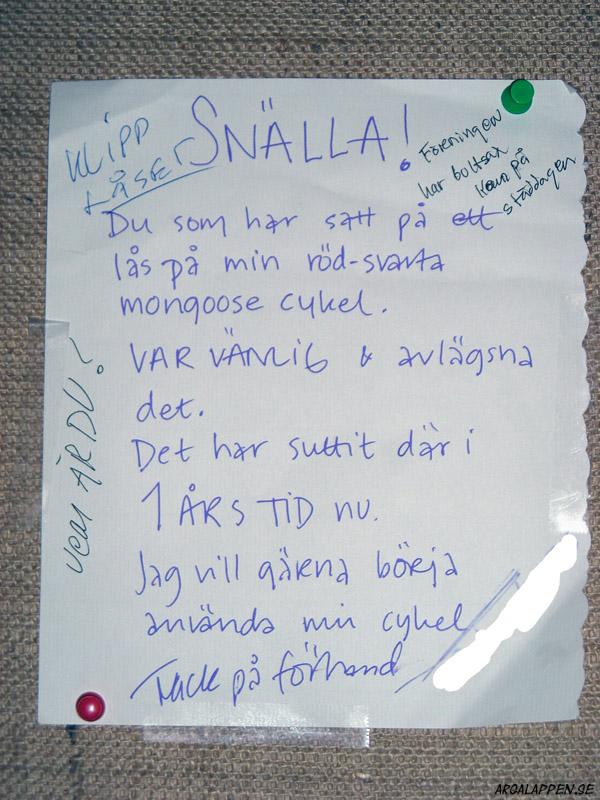 KLIPP
LÅSET
SNÄLLA!
Föreningen
har boltsax
Kom på
städdagen
Du som har satt på ett
lås på min röd-svarta
mongoose cykel.
VAR VÄNLIG & avlägsna
det.
Det har suttit där i
1 ÅRS TID NU.
Jag vill gärna börja
använda min cykel
Tack på förhand
VEM ÄR DU?
ARGALAPPEN.SE